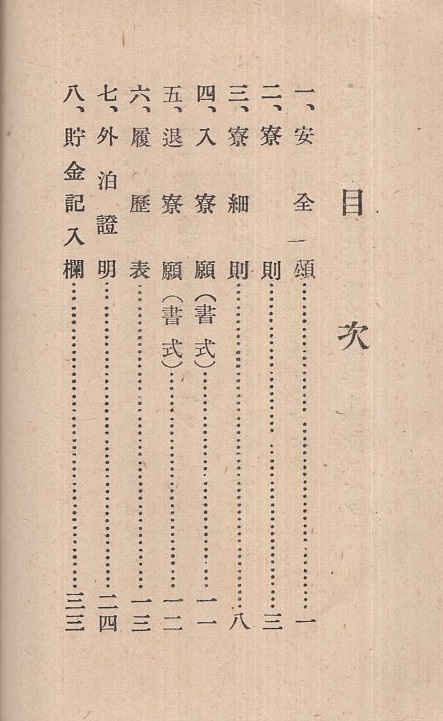 目次
一、安全頌……一
二、寮則……三
三、寮細則……八
四、入寮願(書式)……一一
五、退寮願(書式)……一二
六、履歷表……一三
七、外泊證明……二四
八、貯金記入欄……三三